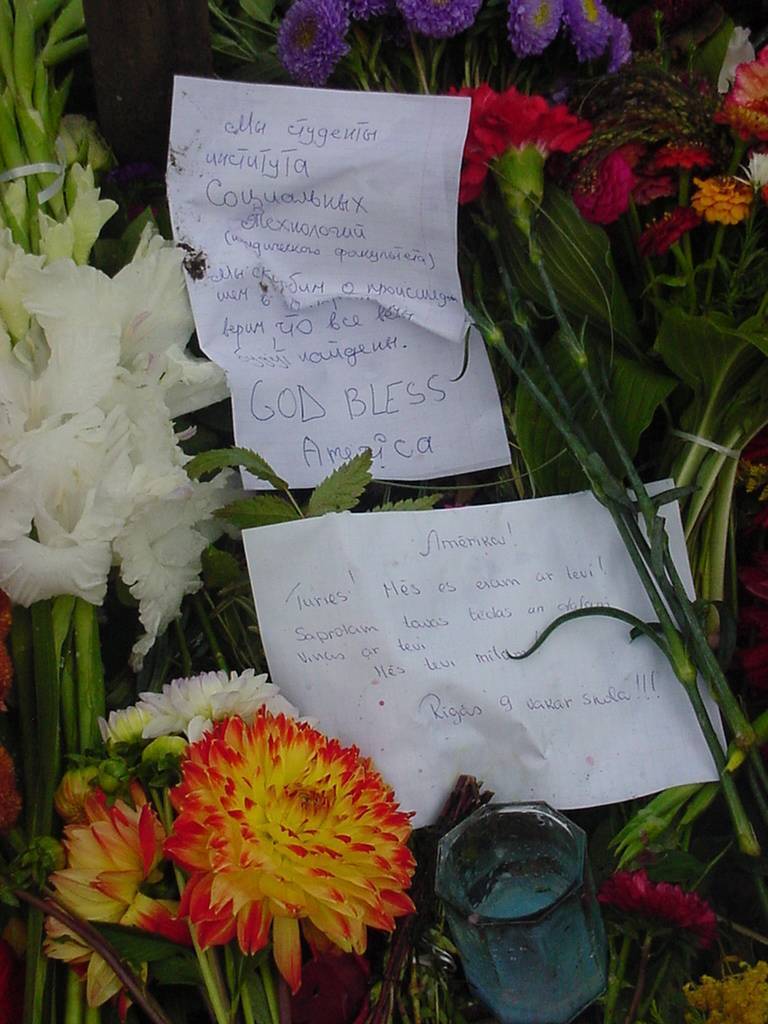 Мы студенты
института
Социальных
Технологий
(юридического факультета)
Мы скорбим о происшед
шем в
верим что все
будут найдены.
GOD BLESS
America
Amērika!
Turies! Mēs es esam ar tevi!
Saprotam tavas bēdas un
vinas ar tevi
Mēs tevi mīlam!
Rīgas 9 vakar skola!!!